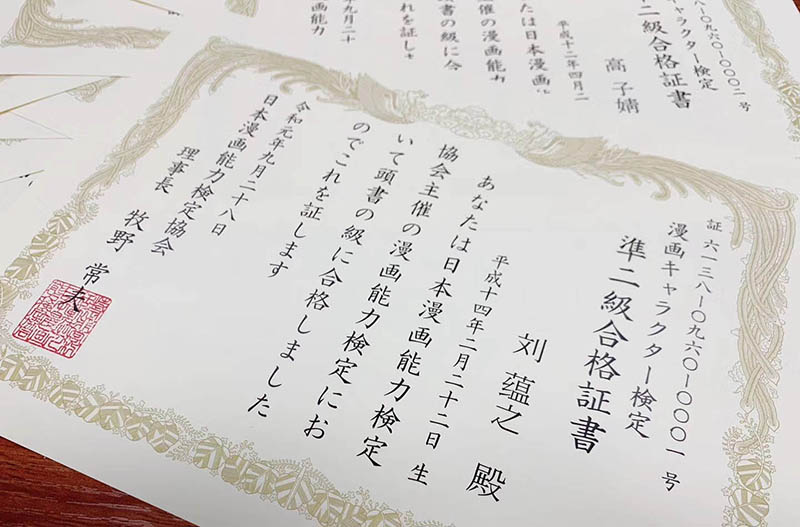 証 六一三八ー〇九六〇ー〇〇〇一 号
漫画キャラクター検定
準二級合格証書
刘 蕴之 殿
平成十四年二月二十二日 生
あなたは日本漫画能力検定
協会主催の漫画能力検定にお
いて頭書の級に合格しました
のでこれを証します
令和元年九月二十八日
日本漫画能力検定協会
理事長 牧野 常夫
ー〇九六〇ー〇〇〇二 号
ャラクター検定
準二級合格証書
高 子婧
平成十二年四月二
たは日本漫画
催の漫画能力
書の級に合
れを証しま
年九月二十
画能力